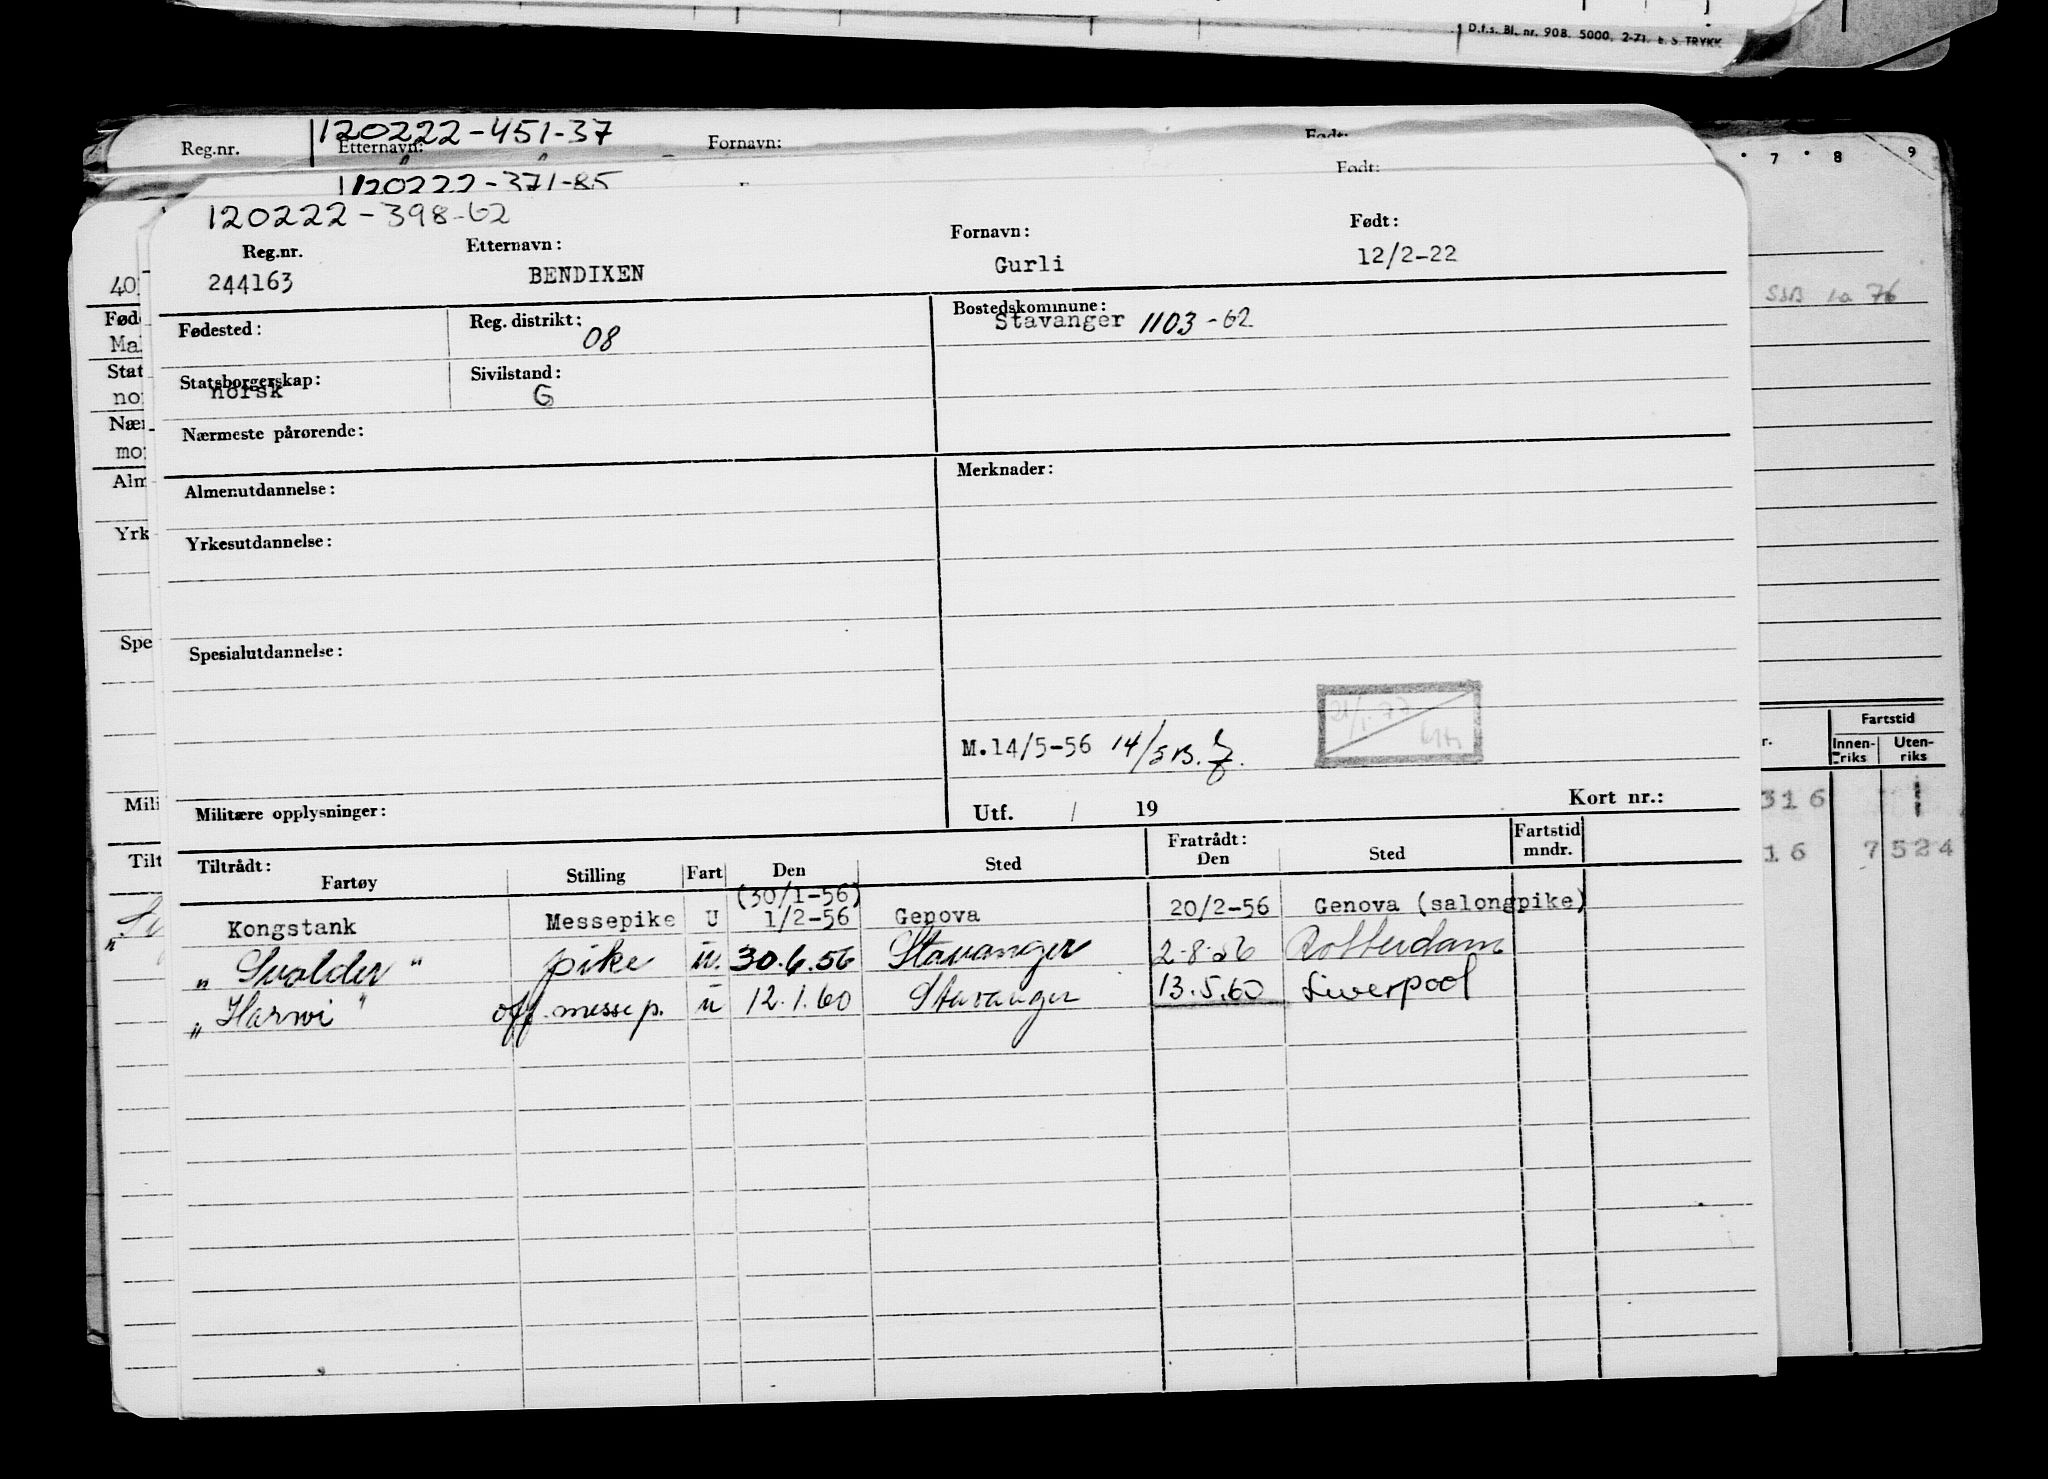 D.f.s. Bl. nr. 908. 5000. 2-71. E. S. TRYKK
120222-451-37
Reg.nr. Etternavn: Fornavn: Født:
120222-371-85 Født:
7 8 9
120222-398-62
Reg.nr. Etternavn: Fornavn: Født:
244163 BENDIXEN Gurli 12/2-22
SSB 1a 76
Fødested: Reg. distrikt: 08 Bostedskommune: Stavanger 1103-62
Statsborgerskap: norsk Sivilstand: G
Nærmeste pårørende:
Almenutdannelse: Merknader:
Yrkesutdannelse:
Spesialutdannelse:
M.14/5-56 14/5 B.
21/1.77
Militære opplysninger: Utf. / 19 Kort nr.:
Tiltrådt: Fratrådt:
Fartøy Stilling Fart Den Sted Den Sted Fartstid mndr.
(30/1-56)
Kongstank Messepike U 1/2-56 Genova 20/2-56 Genova (salongpike)
„Svolder" pike u. 30.6.56 Stavanger 2-8-56 Rotterdam
„Harwi" off. messep. u 12.1.60 Stavanger 13.5.60 Liverpool
40
Fød
Ma
Stat
no
Nær
mo
Alm
Yrk
Spe
Mili
Tilt
Fartstid
r. Innenriks Utenriks
316
16 7524